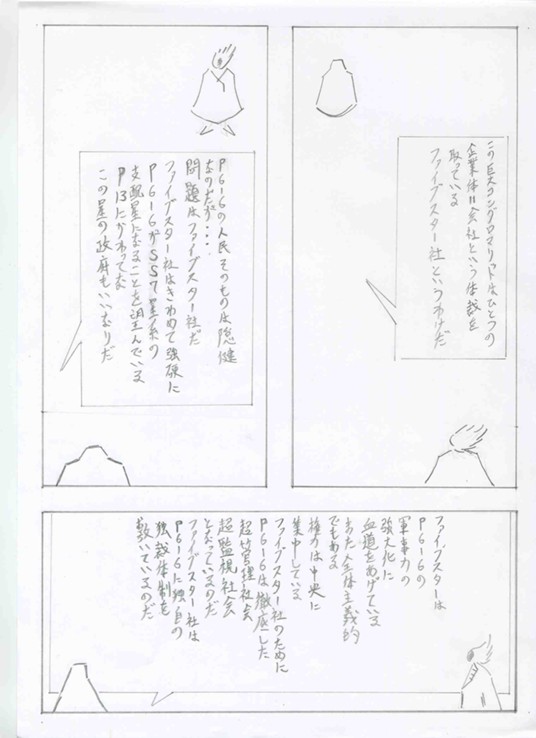 この巨大コングロマリットはひとつの
企業体＝会社という体裁を
取っている
ファイブスター社というわけだ
P616の人民そのものは隠健
なのだが・・・
問題はファイブスター社だ
ファイブスター社はきわめて強硬に
P616がSS7星系の
支配星になることを望んでいる
P13にかわってな
この星の政府もいいなりだ
ファイブスターは
P616の
軍事力の
強大化に
血道をあげている
また全体主義的
でもある
権力は中央に
集中している
ファイブスター社のために
P616は徹底した
超管理社会
超監視社会
となっているのだ
ファイブスター社は
P616に独自の
独裁体制を
敷いているのだ